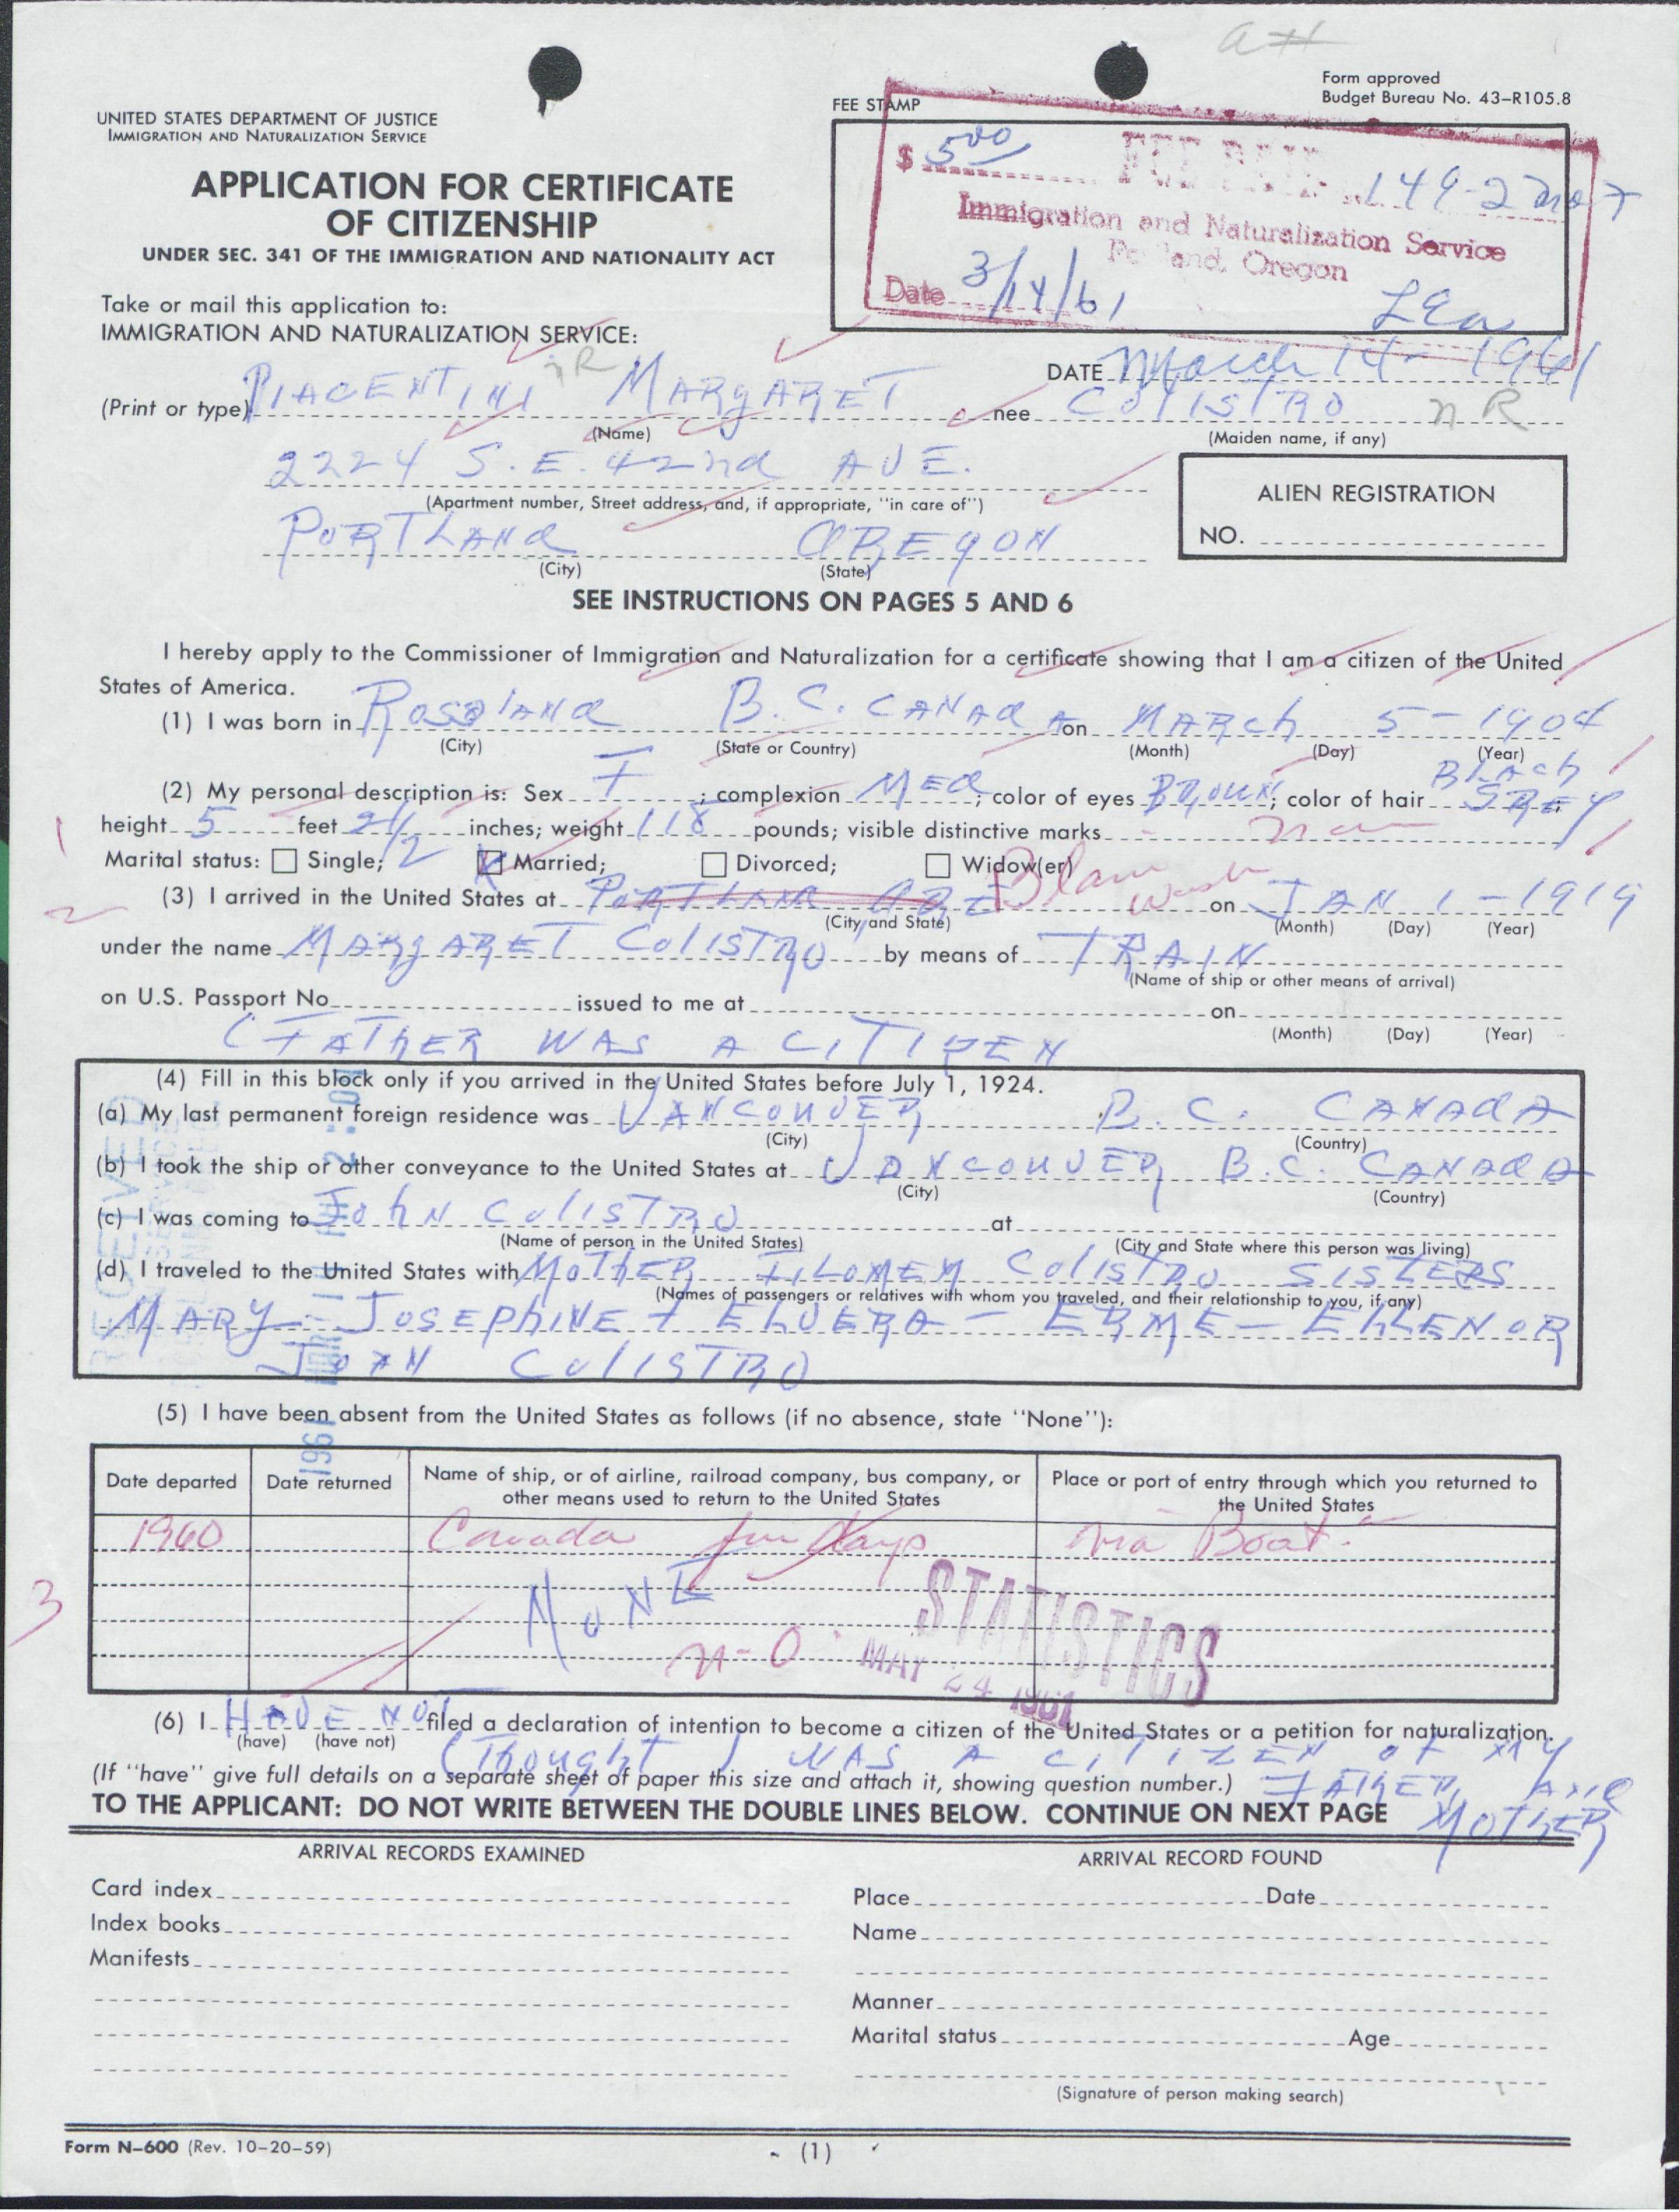 a#
Form approved
Budget Bureau No. 43-R105.8
UNITED STATES DEPARTMENT OF JUSTICE
IMMIGRATION AND NATURALIZATION SERVICE
FEE STAMP
APPLICATION FOR CERTIFICATE
OF CITIZENSHIP
UNDER SEC. 341 OF THE IMMIGRATION AND NATIONALITY ACT
$ 5.00 FEE PAID 149-2
Immigration and Naturalization Service
Portland, Oregon
Date 3/14/61
Take or mail this application to:
IMMIGRATION AND NATURALIZATION SERVICE:
DATE March 14-1961
(Print or type) PIACENTINI nR MARGARET nee COlISTRO nR
(Name) (Maiden name, if any)
2224 S.E. 42nd AVE.
(Apartment number, Street address, and, if appropriate, "in care of")
PORTLANd OREGON
(City) (State)
ALIEN REGISTRATION
NO.
SEE INSTRUCTIONS ON PAGES 5 AND 6
I hereby apply to the Commissioner of Immigration and Naturalization for a certificate showing that I am a citizen of the United
States of America.
(1) I was born in Rossland B.C. CANAdA on MARch 5-1904
(City) (State or Country) (Month) (Day) (Year)
BlAck
(2) My personal description is: Sex F; complexion MEd; color of eyes BROWN; color of hair GREY;
height 5 feet 2 1/2 inches; weight 118 pounds; visible distinctive marks
1
Marital status: Single; Married; Divorced; Widow(er)
(3) I arrived in the United States at PORTLAND ORE Blaine Wash on JAN 1-1919
2
(City and State) (Month) (Day) (Year)
under the name MARGARET COlISTRO by means of TRAIN
(Name of ship or other means of arrival)
on U.S. Passport No. issued to me at on
(Month) (Day) (Year)
(FATHER WAS A CITIZEN
(4) Fill in this block only if you arrived in the United States before July 1, 1924.
(a) My last permanent foreign residence was VANCOUVER B.C. CANAdA
(City) (Country)
(b) I took the ship or other conveyance to the United States at VANCOUVER B.C. CANAdA
(City) (Country)
(c) I was coming to JohN COlISTRO at
(Name of person in the United States) (City and State where this person was living)
(d) I traveled to the United States with MOThER FILOMEN COlISTRO SISTERS
(Names of passengers or relatives with whom you traveled, and their relationship to you, if any)
MARY - JOSEPhINE + ELVERA - ERME - ELLENOR
COlISTRO
RECEIVED
1961
(5) I have been absent from the United States as follows (if no absence, state "None"):
Date departed Date returned Name of ship, or of airline, railroad company, bus company, or other means used to return to the United States Place or port of entry through which you returned to the United States
1960 Canada few days via Boat.
3
NONE
n-O
STATISTICS
MAY 24 1961
(6) I HAVE NOT filed a declaration of intention to become a citizen of the United States or a petition for naturalization.
(have) (have not)
(Thought I WAS A CITIZEN of MY
(If "have" give full details on a separate sheet of paper this size and attach it, showing question number.) FATHER ANd
TO THE APPLICANT: DO NOT WRITE BETWEEN THE DOUBLE LINES BELOW. CONTINUE ON NEXT PAGE MOThER
ARRIVAL RECORDS EXAMINED
ARRIVAL RECORD FOUND
Card index
Place Date
Index books
Name
Manifests
Manner
Marital status Age
(Signature of person making search)
Form N-600 (Rev. 10-20-59)
(1)